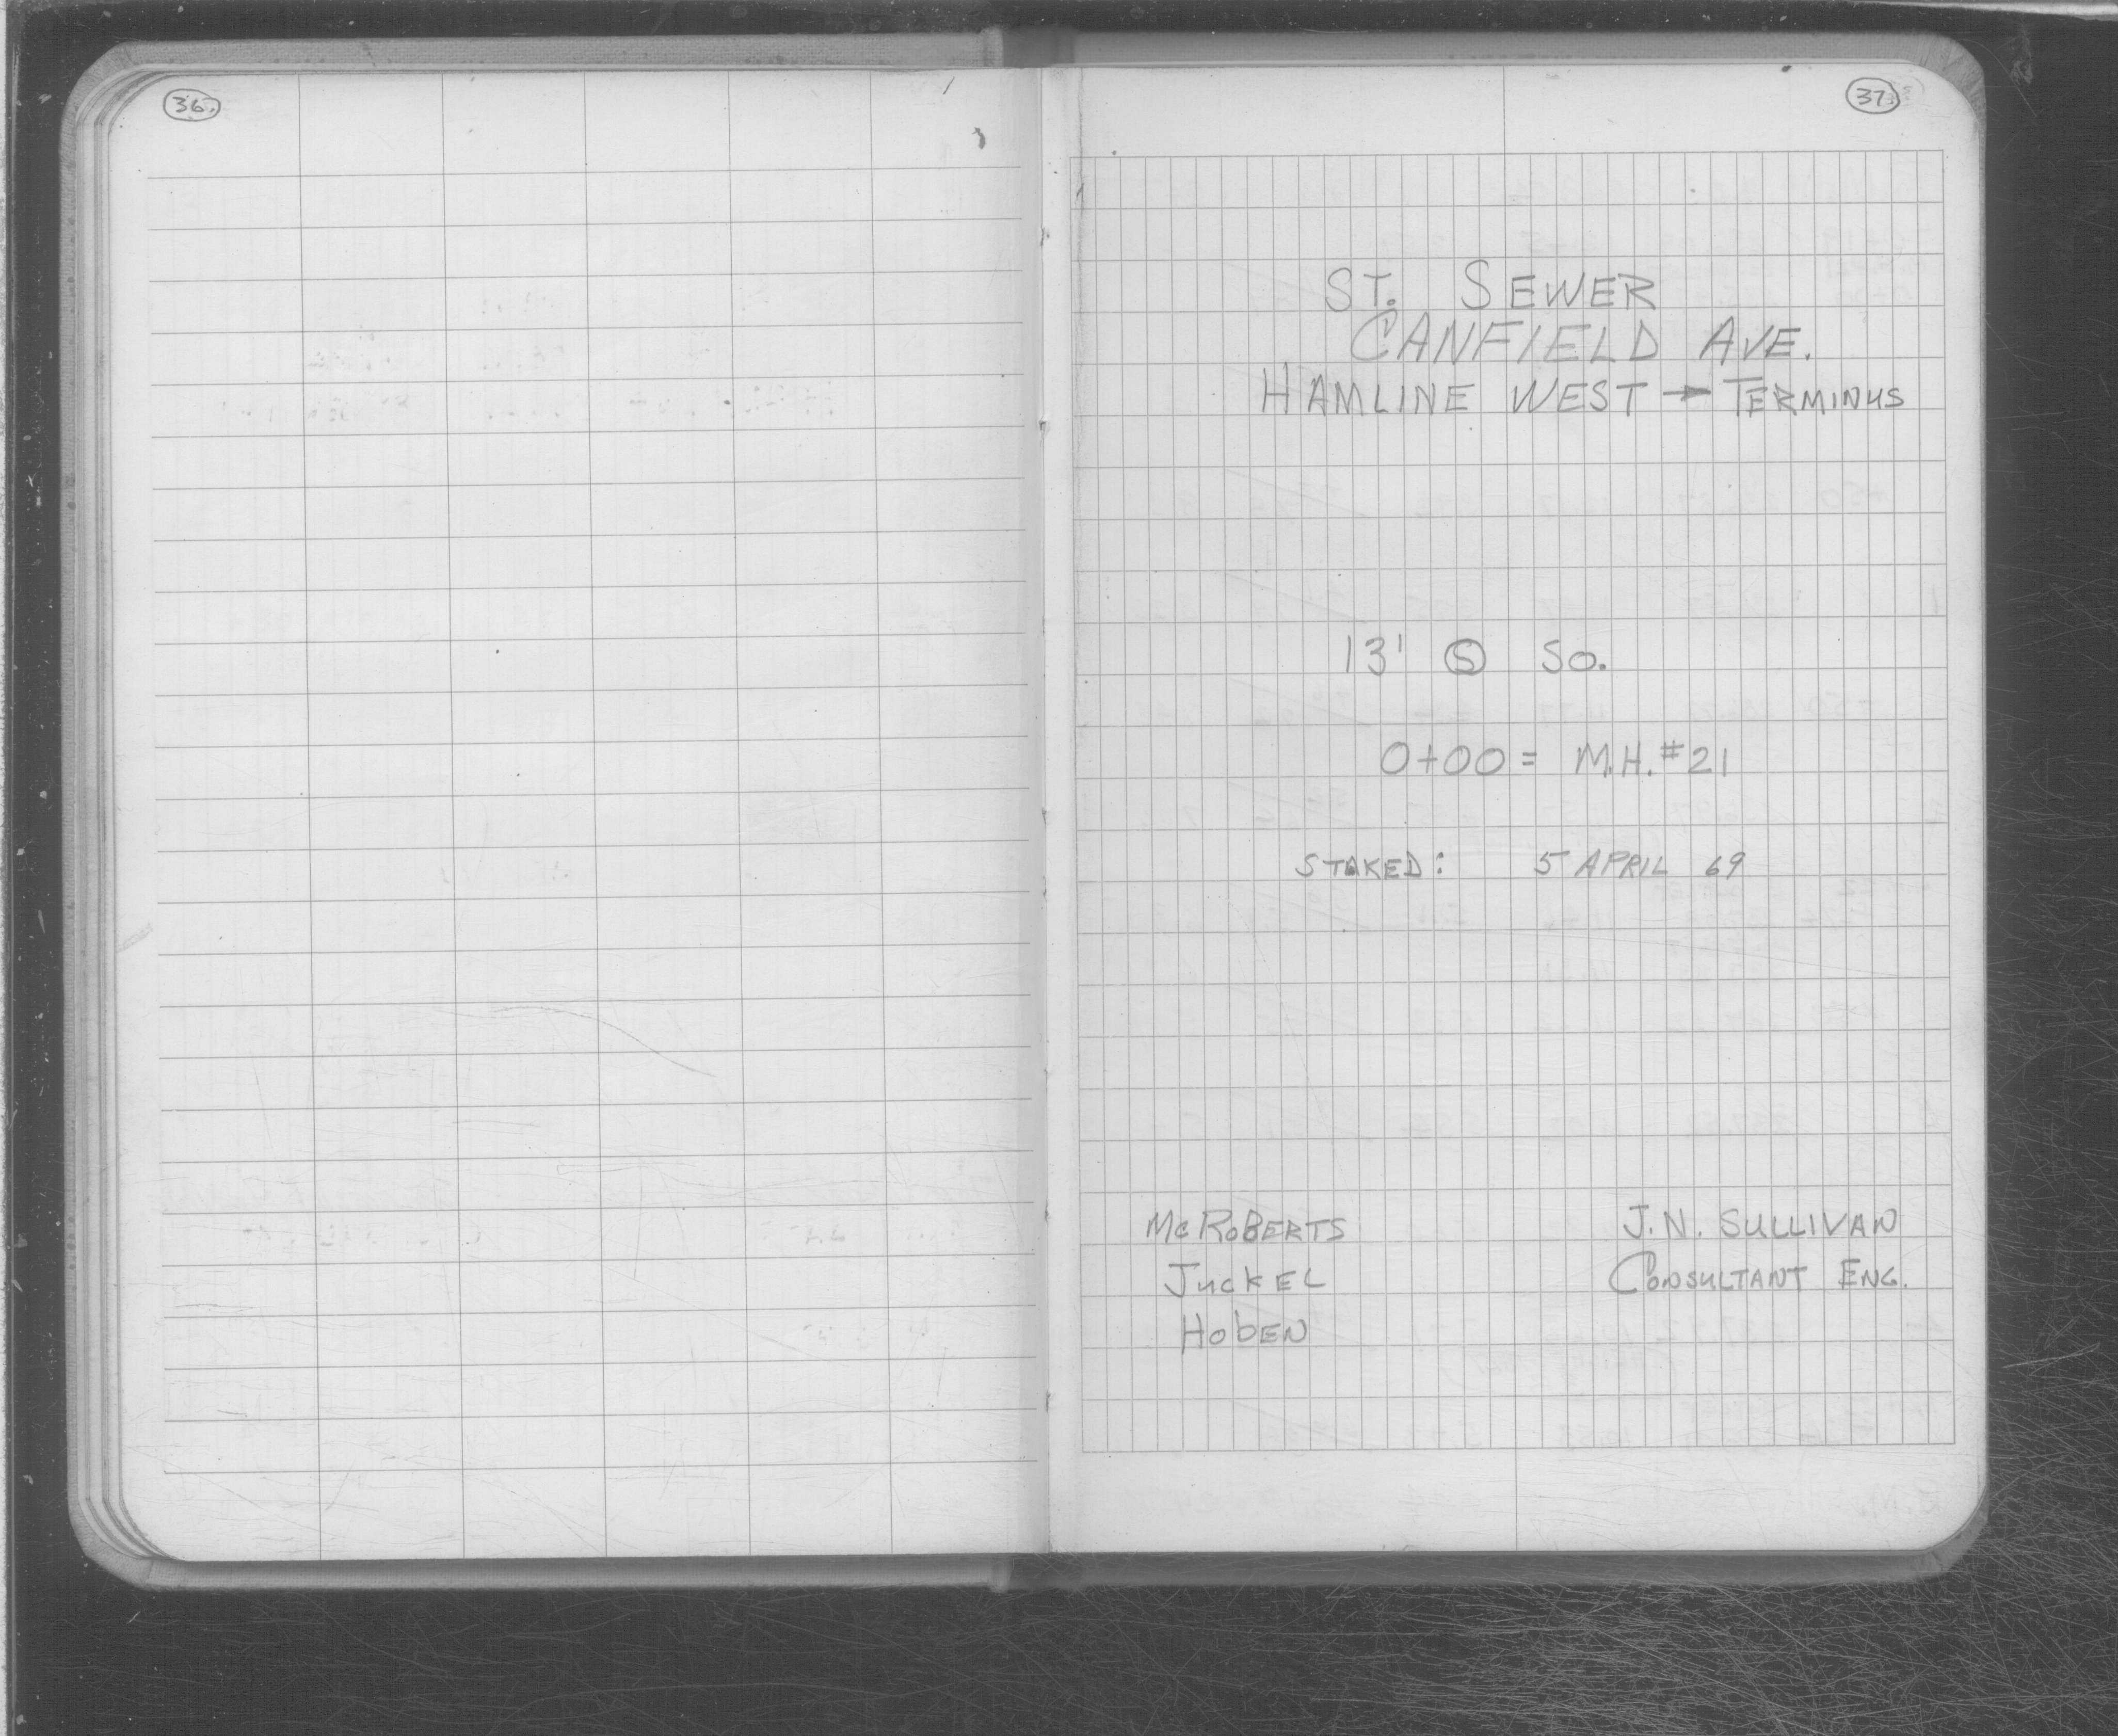 36
37
ST. SEWER
CANFIELD AVE.
HAMLINE WEST → TERMINUS
13' Ⓢ SO.
0+00 = M.H. #21
STAKED: 5 APRIL 69
McROBERTS
JUCKEL
HOBEN
J.N. SULLIVAN
CONSULTANT ENG.